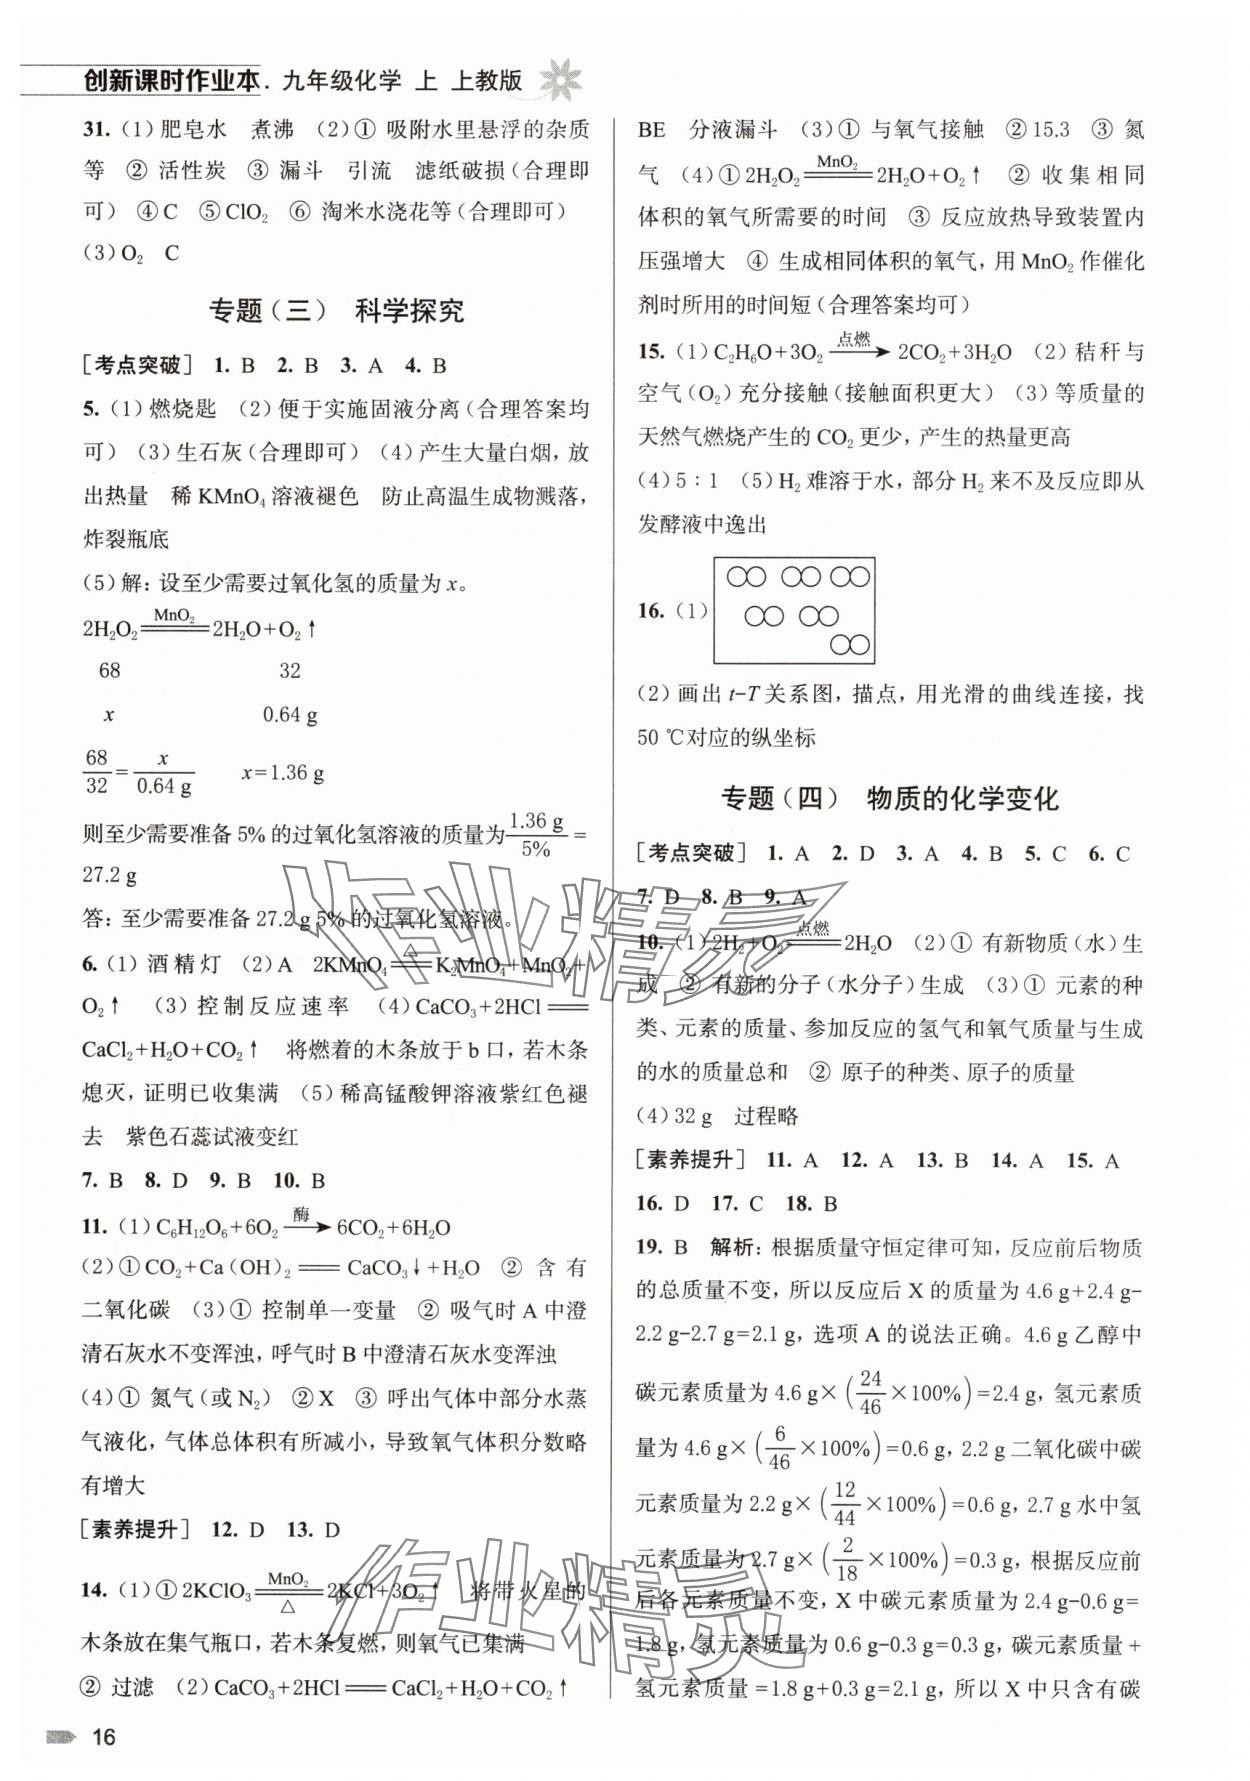 创新课时作业本. 九年级化学 上 上教版
31. (1)肥皂水 煮沸 (2)① 吸附水里悬浮的杂质
等 ② 活性炭 ③ 漏斗 引流 滤纸破损(合理即
可) ④C ⑤ClO₂ ⑥ 淘米水浇花等(合理即可)
(3)O₂ C
专题(三) 科学探究
[考点突破] 1. B 2. B 3. A 4. B
5. (1)燃烧匙 (2)便于实施固液分离(合理答案均
可) (3)生石灰(合理即可) (4)产生大量白烟,放
出热量 稀 KMnO₄ 溶液褪色 防止高温生成物溅落,
炸裂瓶底
(5)解:设至少需要过氧化氢的质量为 x。
MnO₂
2H₂O₂═══2H₂O+O₂↑
68 32
x 0.64 g
68/32=x/0.64 g x=1.36 g
则至少需要准备 5% 的过氧化氢溶液的质量为1.36 g/5%=
27.2 g
答:至少需要准备 27.2 g 5% 的过氧化氢溶液。
6. (1)酒精灯 (2)A 2KMnO₄ ═△═ K₂MnO₄+MnO₂+
O₂↑ (3)控制反应速率 (4)CaCO₃+2HCl═══
CaCl₂+H₂O+CO₂↑ 将燃着的木条放于 b 口,若木条
熄灭,证明已收集满 (5)稀高锰酸钾溶液紫红色褪
去 紫色石蕊试液变红
7. B 8. D 9. B 10. B
11. (1)C₆H₁₂O₆+6O₂ —酶→ 6CO₂+6H₂O
(2)①CO₂+Ca(OH)₂═══CaCO₃↓+H₂O ② 含有
二氧化碳 (3)① 控制单一变量 ② 吸气时 A 中澄
清石灰水不变浑浊,呼气时 B 中澄清石灰水变浑浊
(4)① 氮气(或 N₂) ②X ③ 呼出气体中部分水蒸
气液化,气体总体积有所减小,导致氧气体积分数略
有增大
[素养提升] 12. D 13. D
14. (1)①2KClO₃ ═MnO₂/△═ 2KCl+3O₂↑ 将带火星的
木条放在集气瓶口,若木条复燃,则氧气已集满
② 过滤 (2)CaCO₃+2HCl═══CaCl₂+H₂O+CO₂↑
BE 分液漏斗 (3)① 与氧气接触 ②15.3 ③ 氮
气 (4)①2H₂O₂ ═MnO₂═ 2H₂O+O₂↑ ② 收集相同
体积的氧气所需要的时间 ③ 反应放热导致装置内
压强增大 ④ 生成相同体积的氧气,用 MnO₂ 作催化
剂时所用的时间短(合理答案均可)
15. (1)C₂H₆O+3O₂ —点燃→ 2CO₂+3H₂O (2)秸秆与
空气(O₂)充分接触(接触面积更大) (3)等质量的
天然气燃烧产生的 CO₂ 更少,产生的热量更高
(4)5∶1 (5)H₂ 难溶于水,部分 H₂ 来不及反应即从
发酵液中逸出
16. (1)
(2)画出 t-T 关系图,描点,用光滑的曲线连接,找
50 ℃对应的纵坐标
专题(四) 物质的化学变化
[考点突破] 1. A 2. D 3. A 4. B 5. C 6. C
7. D 8. B 9. A
10. (1)2H₂+O₂ ═点燃═ 2H₂O (2)① 有新物质(水)生
成 ② 有新的分子(水分子)生成 (3)① 元素的种
类、元素的质量、参加反应的氢气和氧气质量与生成
的水的质量总和 ② 原子的种类、原子的质量
(4)32 g 过程略
[素养提升] 11. A 12. A 13. B 14. A 15. A
16. D 17. C 18. B
19. B 解析:根据质量守恒定律可知,反应前后物质
的总质量不变,所以反应后 X 的质量为 4.6 g+2.4 g-
2.2 g-2.7 g=2.1 g,选项 A 的说法正确。4.6 g 乙醇中
碳元素质量为 4.6 g×(24/46×100%)=2.4 g,氢元素质
量为 4.6 g×(6/46×100%)=0.6 g,2.2 g 二氧化碳中碳
元素质量为 2.2 g×(12/44×100%)=0.6 g,2.7 g 水中氢
元素质量为 2.7 g×(2/18×100%)=0.3 g,根据反应前
后各元素质量不变,X 中碳元素质量为 2.4 g-0.6 g=
1.8 g,氢元素质量为 0.6 g-0.3 g=0.3 g,碳元素质量+
氢元素质量=1.8 g+0.3 g=2.1 g,所以 X 中只含有碳
作业精灵
作业精灵
16